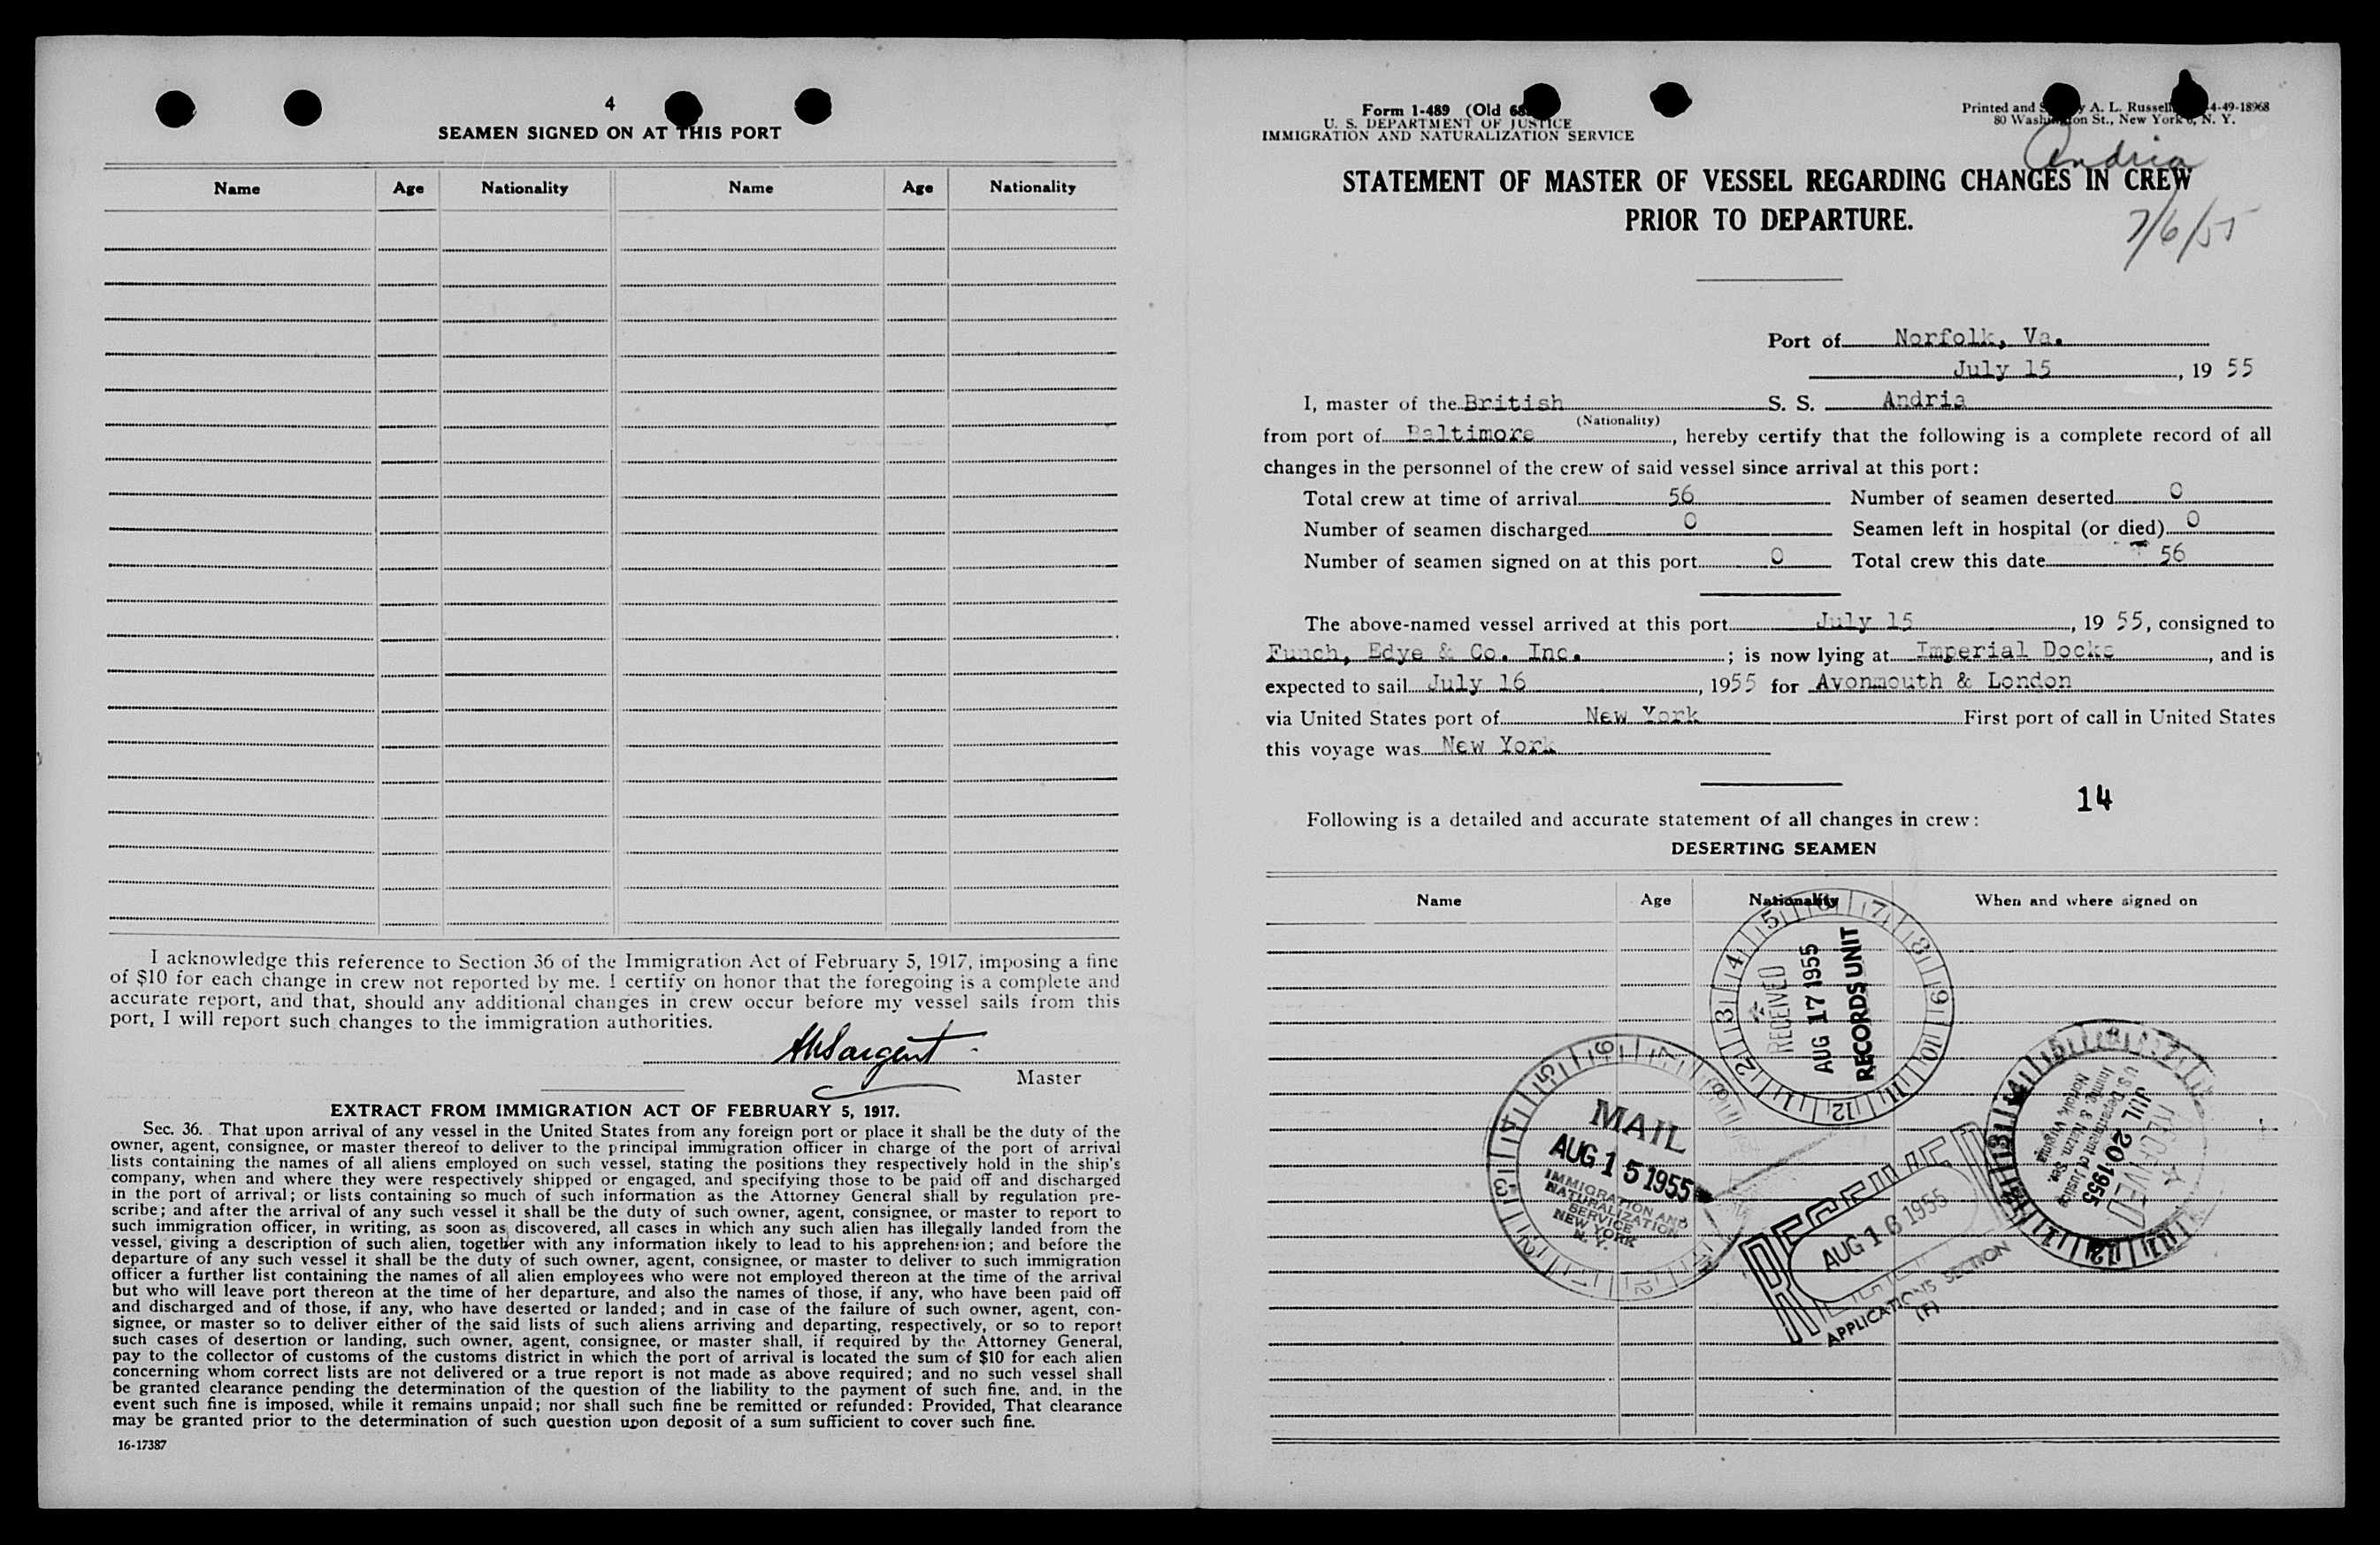 4
SEAMEN SIGNED ON AT THIS PORT
Name Age Nationality Name Age Nationality
I acknowledge this reference to Section 36 of the Immigration Act of February 5, 1917, imposing a fine
of $10 for each change in crew not reported by me. I certify on honor that the foregoing is a complete and
accurate report, and that, should any additional changes in crew occur before my vessel sails from this
port, I will report such changes to the immigration authorities.
Sargent
Master
EXTRACT FROM IMMIGRATION ACT OF FEBRUARY 5, 1917.
Sec. 36. That upon arrival of any vessel in the United States from any foreign port or place it shall be the duty of the
owner, agent, consignee, or master thereof to deliver to the principal immigration officer in charge of the port of arrival
lists containing the names of all aliens employed on such vessel, stating the positions they respectively hold in the ship's
company, when and where they were respectively shipped or engaged, and specifying those to be paid off and discharged
in the port of arrival; or lists containing so much of such information as the Attorney General shall by regulation pre-
scribe; and after the arrival of any such vessel it shall be the duty of such owner, agent, consignee, or master to report to
such immigration officer, in writing, as soon as discovered, all cases in which any such alien has illegally landed from the
vessel, giving a description of such alien, together with any information likely to lead to his apprehension; and before the
departure of any such vessel it shall be the duty of such owner, agent, consignee, or master to deliver to such immigration
officer a further list containing the names of all alien employees who were not employed thereon at the time of the arrival
but who will leave port thereon at the time of her departure, and also the names of those, if any, who have been paid off
and discharged and of those, if any, who have deserted or landed; and in case of the failure of such owner, agent, con-
signee, or master so to deliver either of the said lists of such aliens arriving and departing, respectively, or so to report
such cases of desertion or landing, such owner, agent, consignee, or master shall, if required by the Attorney General,
pay to the collector of customs of the customs district in which the port of arrival is located the sum of $10 for each alien
concerning whom correct lists are not delivered or a true report is not made as above required; and no such vessel shall
be granted clearance pending the determination of the question of the liability to the payment of such fine, and, in the
event such fine is imposed, while it remains unpaid; nor shall such fine be remitted or refunded: Provided, That clearance
may be granted prior to the determination of such question upon deposit of a sum sufficient to cover such fine.
16-17387
Form I-489 (Old
U. S. DEPARTMENT OF JUSTICE
IMMIGRATION AND NATURALIZATION SERVICE
Printed and A. L. Russell 4-49-18968
80 Washington St., New York 6, N. Y.
Andria
STATEMENT OF MASTER OF VESSEL REGARDING CHANGES IN CREW
PRIOR TO DEPARTURE.
7/6/55
Port of Norfolk, Va.
July 15, 19 55
I, master of the British S. S. Andria
(Nationality)
from port of Baltimore, hereby certify that the following is a complete record of all
changes in the personnel of the crew of said vessel since arrival at this port:
Total crew at time of arrival 56 Number of seamen deserted 0
Number of seamen discharged 0 Seamen left in hospital (or died) 0
Number of seamen signed on at this port 0 Total crew this date 56
The above-named vessel arrived at this port July 15, 19 55, consigned to
Funch, Edye & Co. Inc.; is now lying at Imperial Docks, and is
expected to sail July 16, 1955 for Avonmouth & London
via United States port of New York First port of call in United States
this voyage was New York
14
Following is a detailed and accurate statement of all changes in crew:
DESERTING SEAMEN
Name Age Nationality When and where signed on
RECEIVED
AUG 17 1955
RECORDS UNIT
MAIL
AUG 15 1955
IMMIGRATION AND
NATURALIZATION
SERVICE
NEW YORK
N. Y.
RECEIVED
AUG 16 1955
APPLICATIONS SECTION
(F)
RECEIVED
JUL 20 1955
U.S. Department of Justice
Immig. & Natzn. Ser.
Norfolk, Virginia